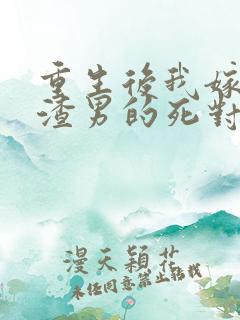 重生後我嫁
渣男的死對
漫天穎花
未經同意禁止轉載